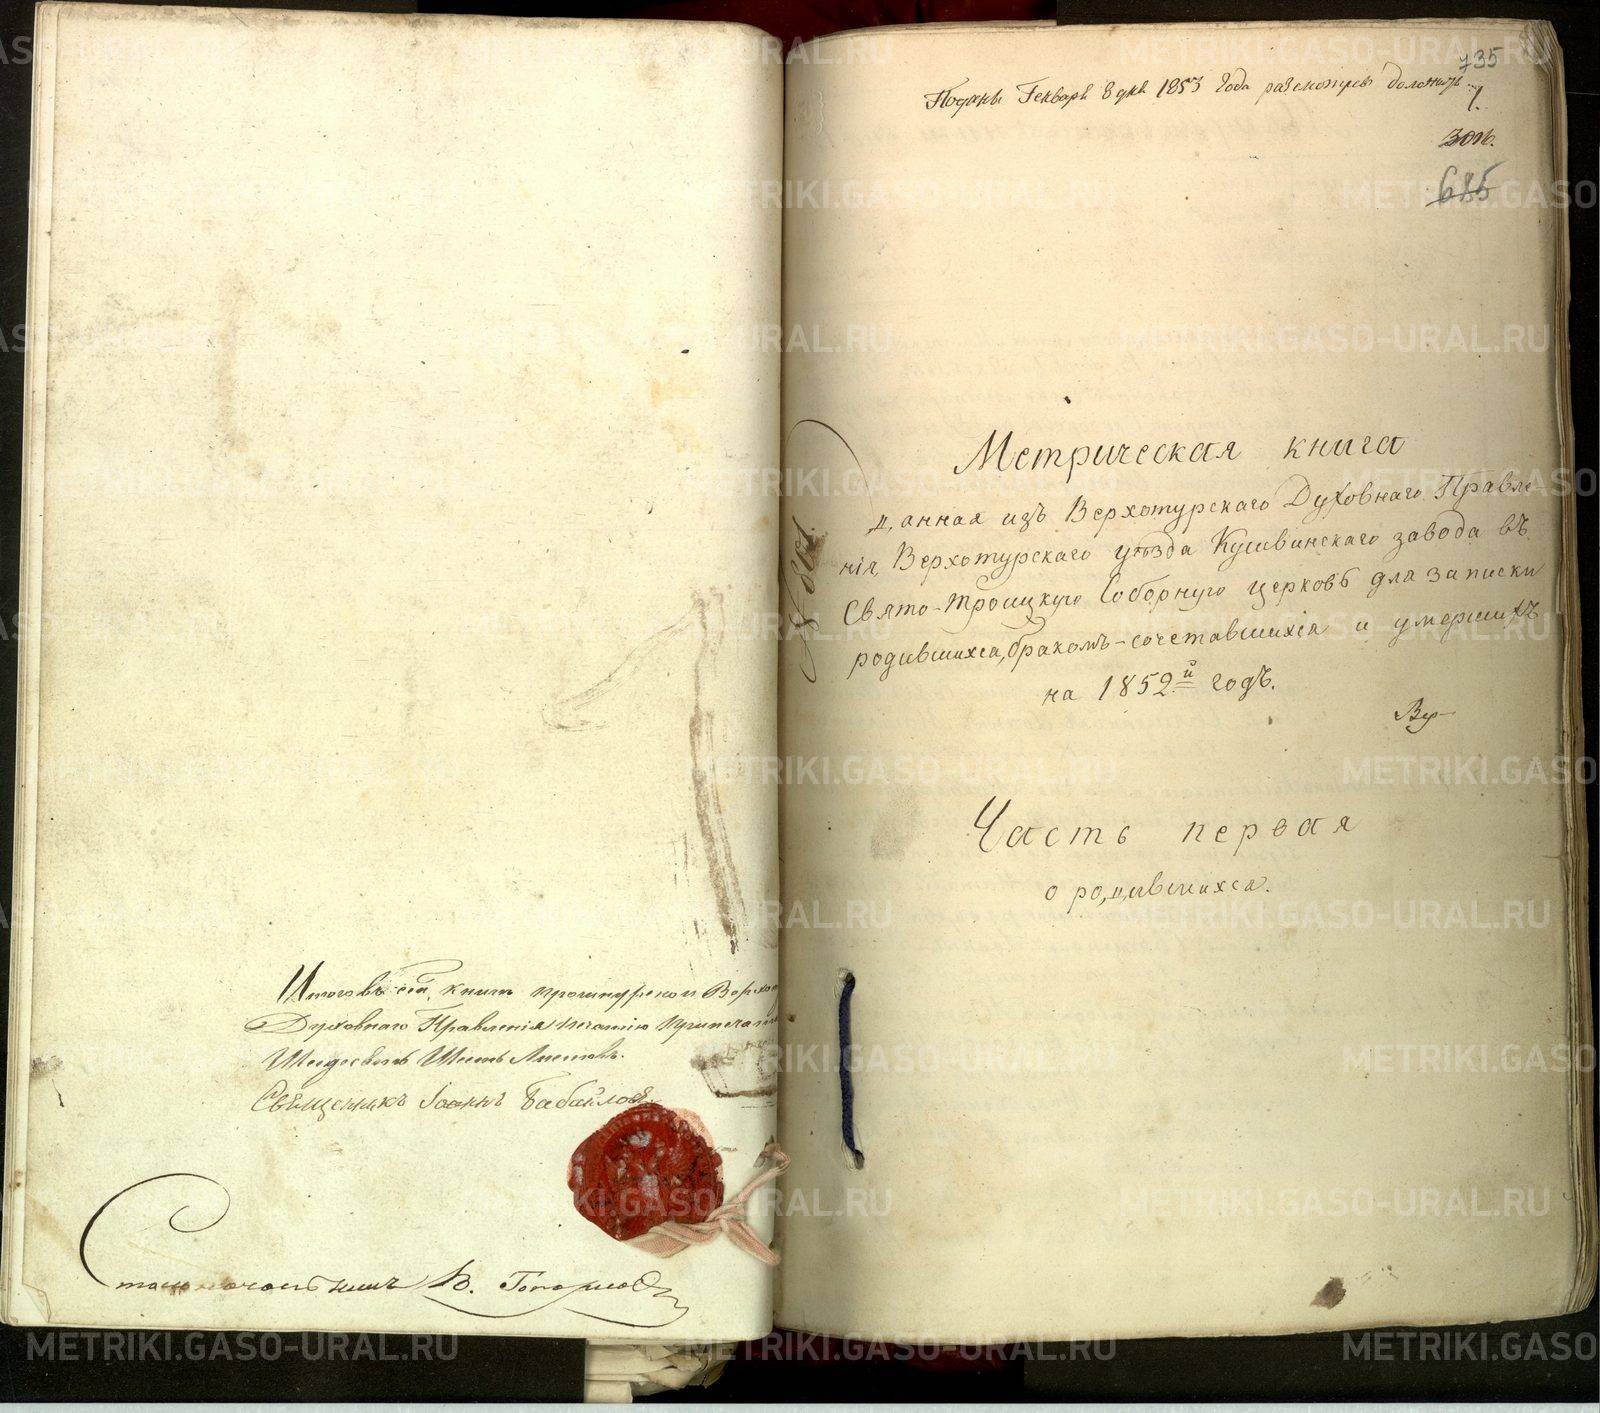 Итого въ сей книгѣ прошнуренои Верхо
Духовнаго Правленія печатію припечата
Шестьдесятъ Шесть Листовъ.
Священникъ Іоаннъ Бабайлов
Столоначальникъ В.
735
Поданы Генваря 8 дня 1853 года
1.
685
Метрическая книга
данная изъ Верхотурскаго Духовнаго Правле-
нія, Верхотурскаго уѣзда Кушвинскаго завода въ
Свято-Троицкую Соборную церковь для записки
родившихся, бракомъ-сочетавшихся и умершихъ
на 1852й годъ.
Часть первая
о родившихся.
METRIKI.GASO-URAL.RU